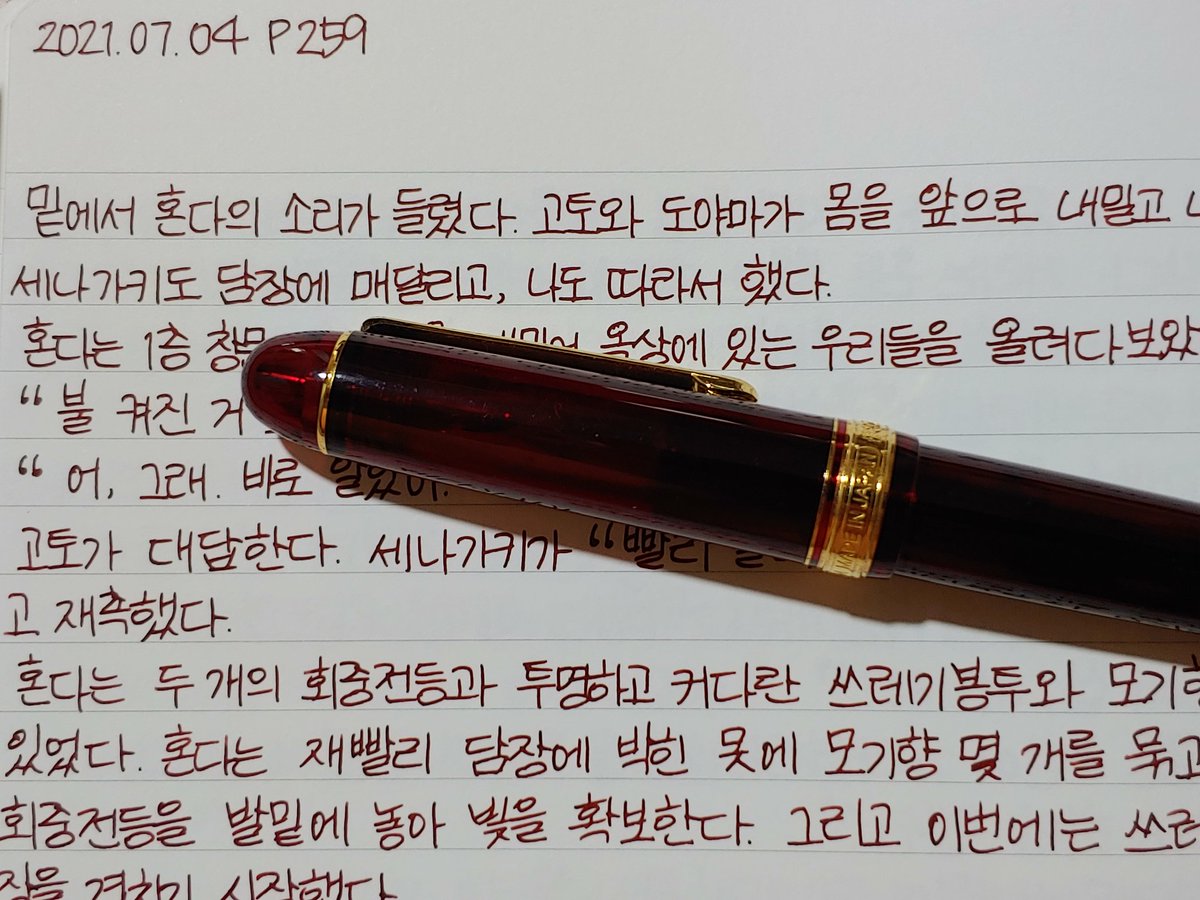 2021.07.04 P259
밑에서 혼다의 소리가 들렸다. 고토와 도야마가 몸을 앞으로 내밀고
세나가키도 담장에 매달리고, 나도 따라서 했다.
혼다는 1층 옥상에 있는 우리들을 올려다보았
“불 켜진 거
“어, 그래. 바로 알았어.
고토가 대답한다. 세나가키가 “빨리
고 재촉했다.
혼다는 두 개의 회중전등과 투명하고 커다란 쓰레기봉투와 모기향
있었다. 혼다는 재빨리 담장에 박힌 못에 모기향 몇 개를 묶고
회중전등을 발밑에 놓아 빛을 확보한다. 그리고 이번에는 쓰레
시작했다
MADE IN JAPAN